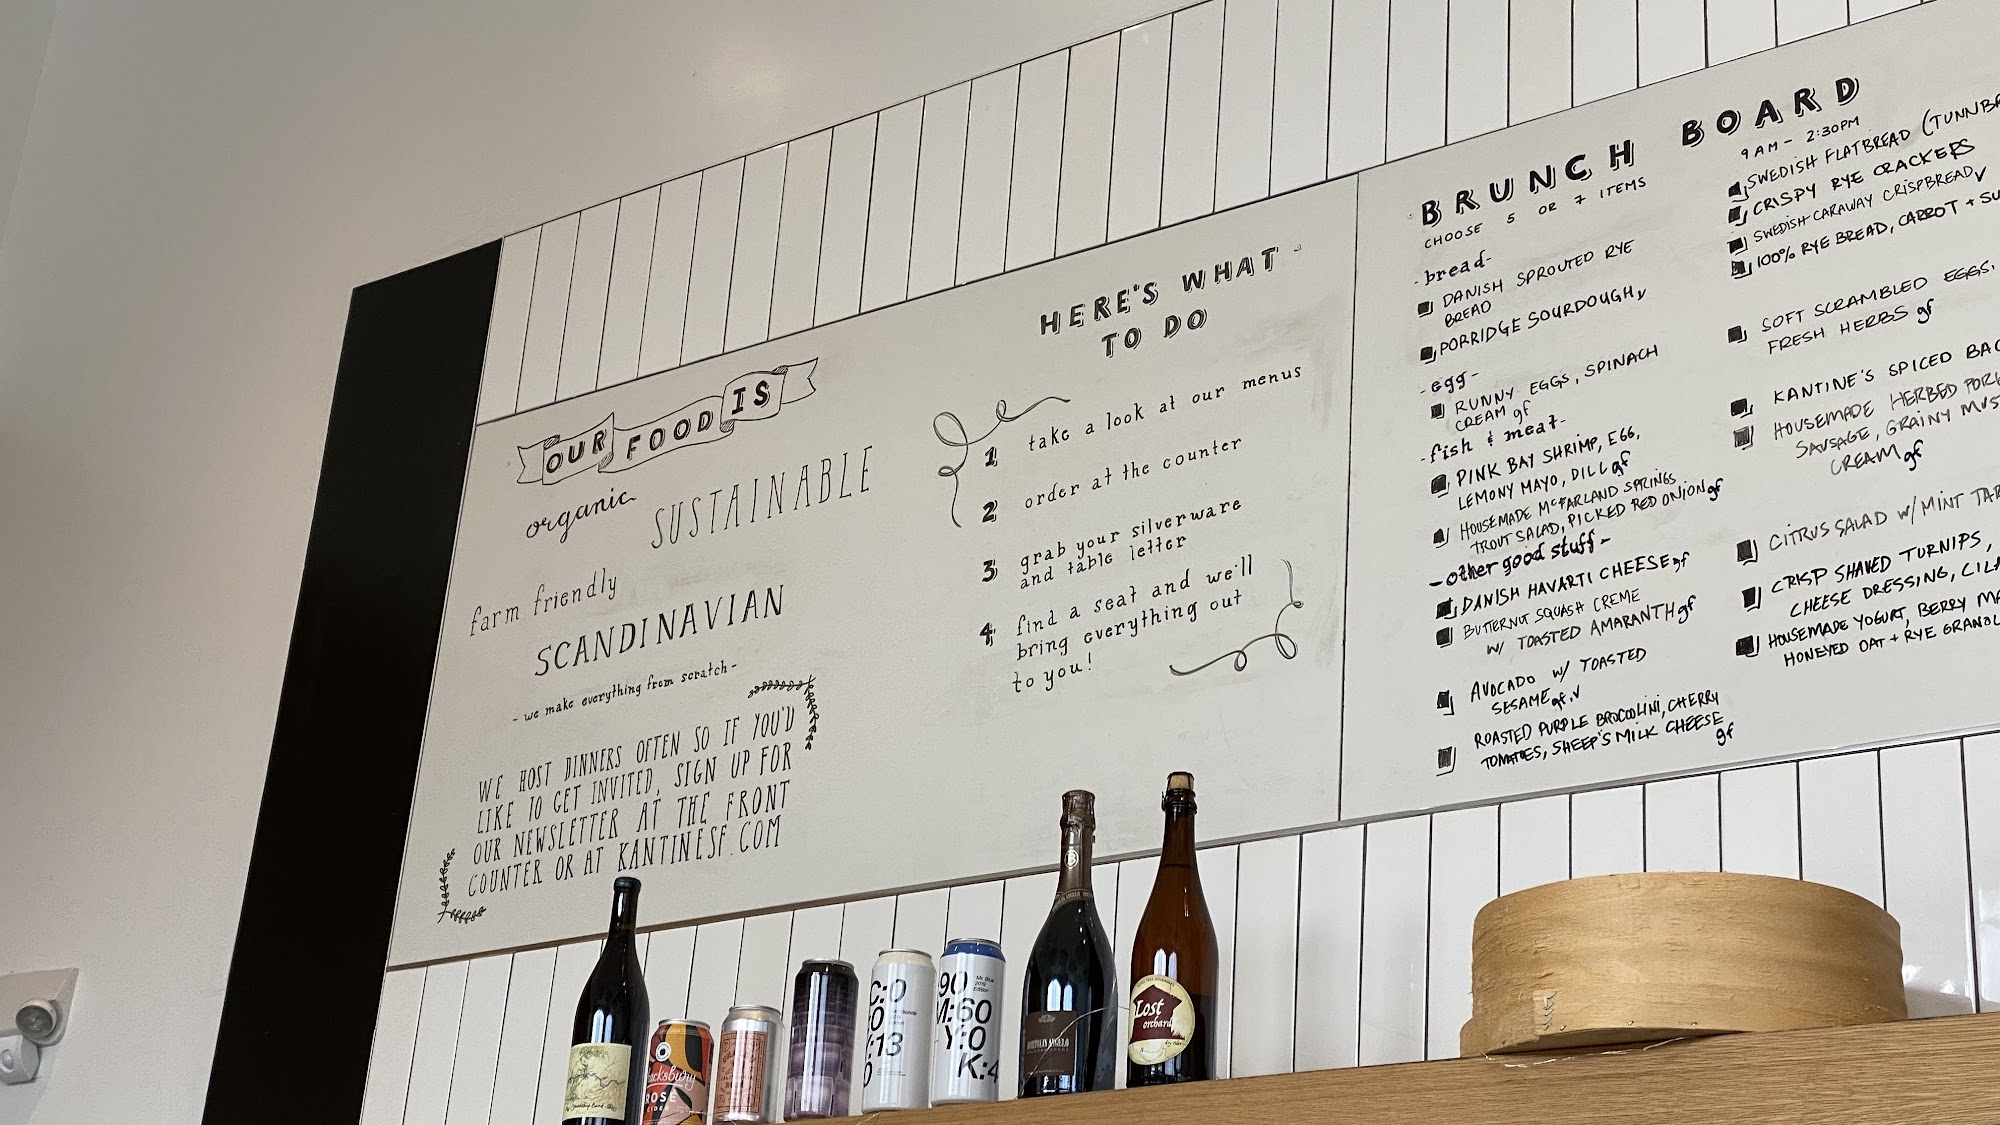 OUR FOOD IS
organic
SUSTAINABLE
farm friendly
SCANDINAVIAN
- we make everything from scratch -
WE HOST DINNERS OFTEN SO IF YOU'D
LIKE TO GET INVITED, SIGN UP FOR
OUR NEWSLETTER AT THE FRONT
COUNTER OR AT KANTINESF.COM
HERE'S WHAT
TO DO
1 take a look at our menus
2 order at the counter
3 grab your silverware
and table letter
4 find a seat and we'll
bring everything out
to you!
BRUNCH BOARD
CHOOSE 5 OR 7 ITEMS
9 AM - 2:30PM
- bread -
DANISH SPROUTED RYE
BREAD
PORRIDGE SOURDOUGH, v
- egg -
RUNNY EGGS, SPINACH
CREAM gf
- fish & meat -
PINK BAY SHRIMP, EGG,
LEMONY MAYO, DILL gf
HOUSEMADE McFARLAND SPRINGS
TROUT SALAD, PICKED RED ONION gf
- other good stuff -
DANISH HAVARTI CHEESE gf
BUTTERNUT SQUASH CREME
W/ TOASTED AMARANTH gf
AVOCADO W/ TOASTED
SESAME gf, v
ROASTED PURPLE BROCOLINI, CHERRY
TOMATOES, SHEEP'S MILK CHEESE
gf
SWEDISH FLATBREAD (TUNNBR
CRISPY RYE CRACKERS
SWEDISH CARAWAY CRISPBREAD, v
100% RYE BREAD, CARROT + SU
SOFT SCRAMBLED EGGS,
FRESH HERBS gf
KANTINE'S SPICED BAC
HOUSEMADE HERBED PORK
SAUSAGE, GRAINY MUS
CREAM gf
CITRUS SALAD W/ MINT TAR
CRISP SHAVED TURNIPS,
CHEESE DRESSING, CILA
HOUSEMADE YOGURT, BERRY MA
HONEYED OAT + RYE GRANOL
ROSÉ
CIDER
C:0
:13
0
Mr. Blue
2019
Edition
90
M:60
Y:0
K:4
Lost
orchard
dry cider